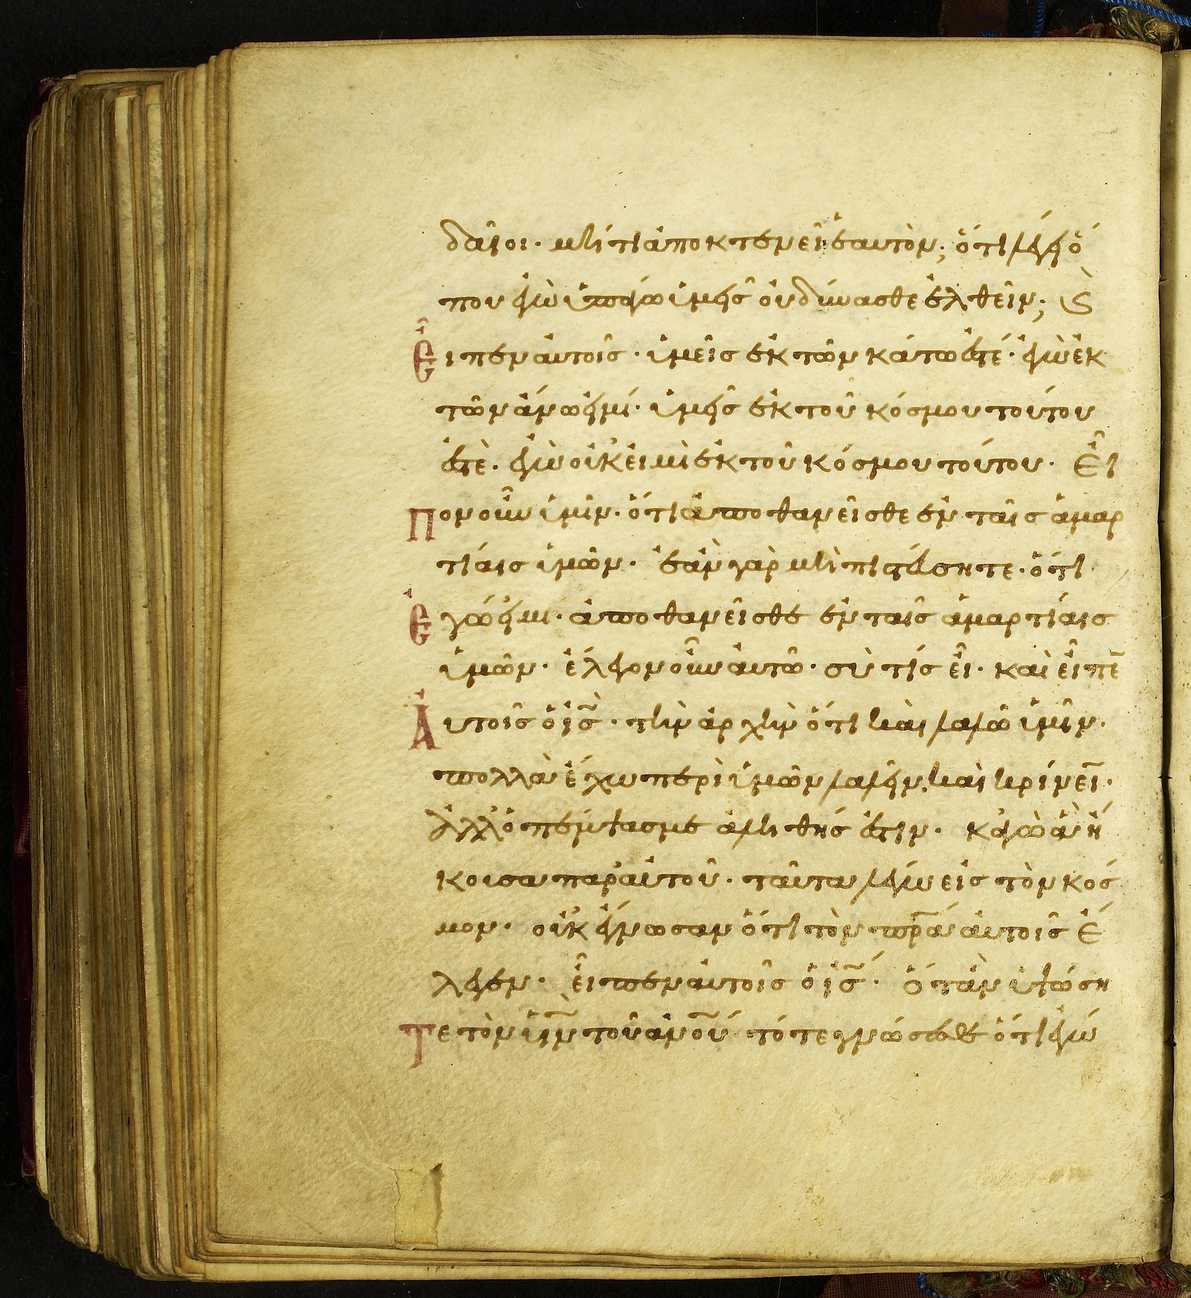 δαῖοι· μήτι ἀποκτενεῖ ἑαυτὸν; ὅτι λέγει ὅ
που ἐγὼ ὑπάγω ὑμεῖς οὐ δύνασθε ἐλθεῖν; Καὶ
εἶπεν αὐτοῖς· ὑμεῖς ἐκ τῶν κάτω ἐστέ· ἐγὼ ἐκ
τῶν ἄνω εἰμί· ὑμεῖς ἐκ τοῦ κόσμου τούτου
ἐστὲ· ἐγὼ οὐκ εἰμὶ ἐκ τοῦ κόσμου τούτου· Εἶ
πον οὖν ὑμῖν· ὅτι ἀποθανεῖσθε ἐν ταῖς ἁμαρ
τίαις ὑμῶν· ἐὰν γὰρ μὴ πιστεύσητε· ὅτι
ἐγώ εἰμι· ἀποθανεῖσθε ἐν ταῖς ἁμαρτίαις
ὑμῶν· ἔλεγον οὖν αὐτῶ· σὺ τίς εἶ· καὶ εἶπε̄
αὐτοῖς ὁ ἰ̄ς̄· τὴν ἀρχὴν ὅτι καὶ λαλῶ ὑμῖν·
πολλὰ ἔχω περὶ ὑμῶν λαλεῖν καὶ κρίνειν·
ἀλλ' ὁ πέμψας με ἀληθής ἐστιν· κἀγὼ ἃ ἤ
κουσα παρ' αὐτοῦ· ταῦτα λέγω εἰς τὸν κόσ
μον· οὐκ ἔγνωσαν ὅτι τὸν π̄ρ̄ᾱ αὐτοῖς ἔ
λεγεν· εἶπεν αὐτοῖς ὁ ἰ̄ς̄· Ὅταν ὑψώση
τε τὸν ῡν̄ τοῦ ᾱν̄ο̄ῡ τότε γνώσεσθε ὅτι ἐγώ